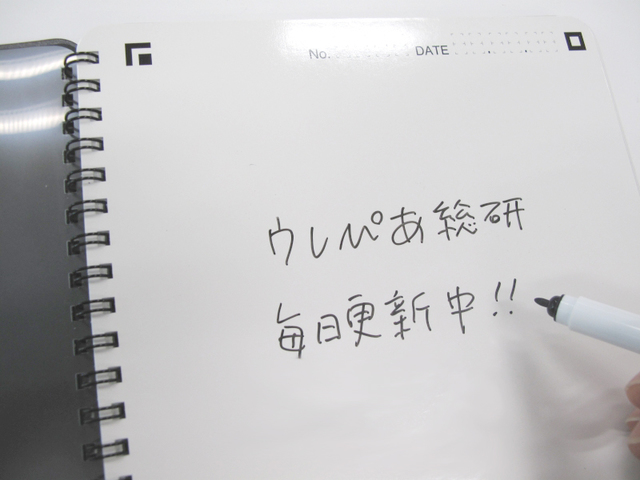 No. DATE
ウレぴあ総研
毎日更新中!!